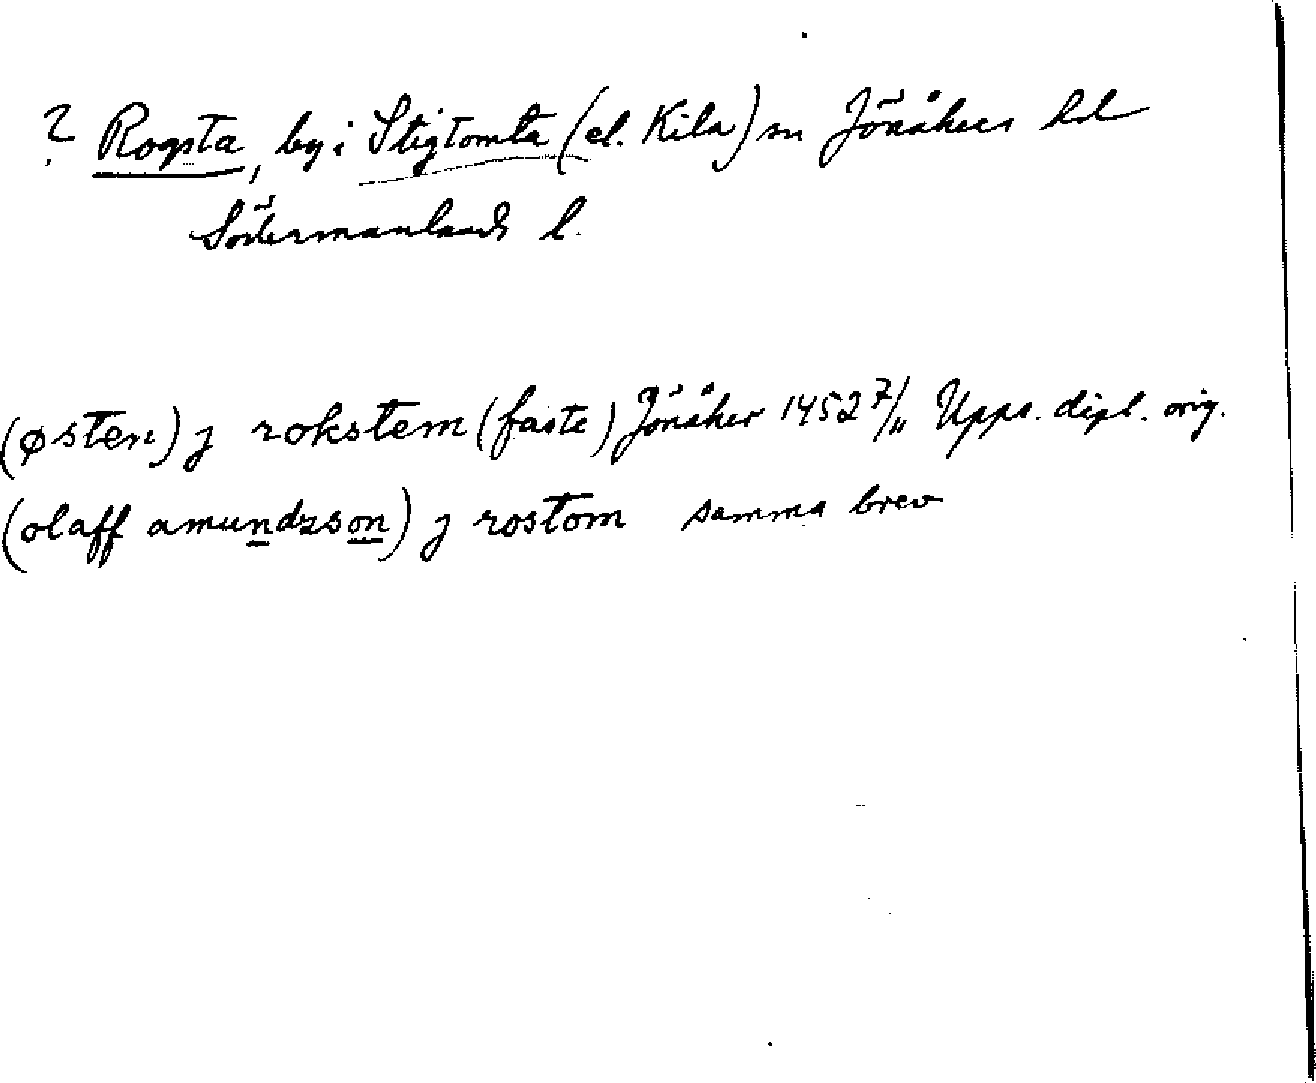 ? Rogsta, by i Stigtomta (el. Kila) sn Jönåkers hd
Södermanlands l.
(østen) j rokstem (faste) Jönåker 1452 7/11 Upps. dipl. orig.
(olaff amundzson) j rostom samma brev